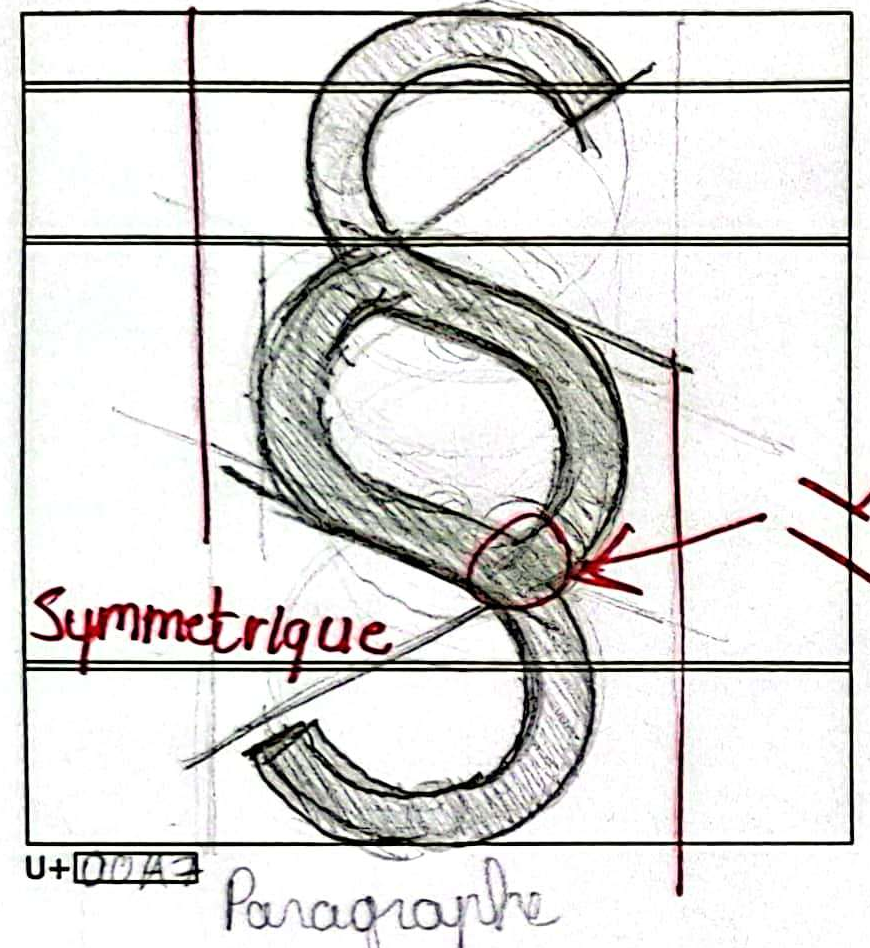 §
Symmetrique
U+00A7
Paragraphe